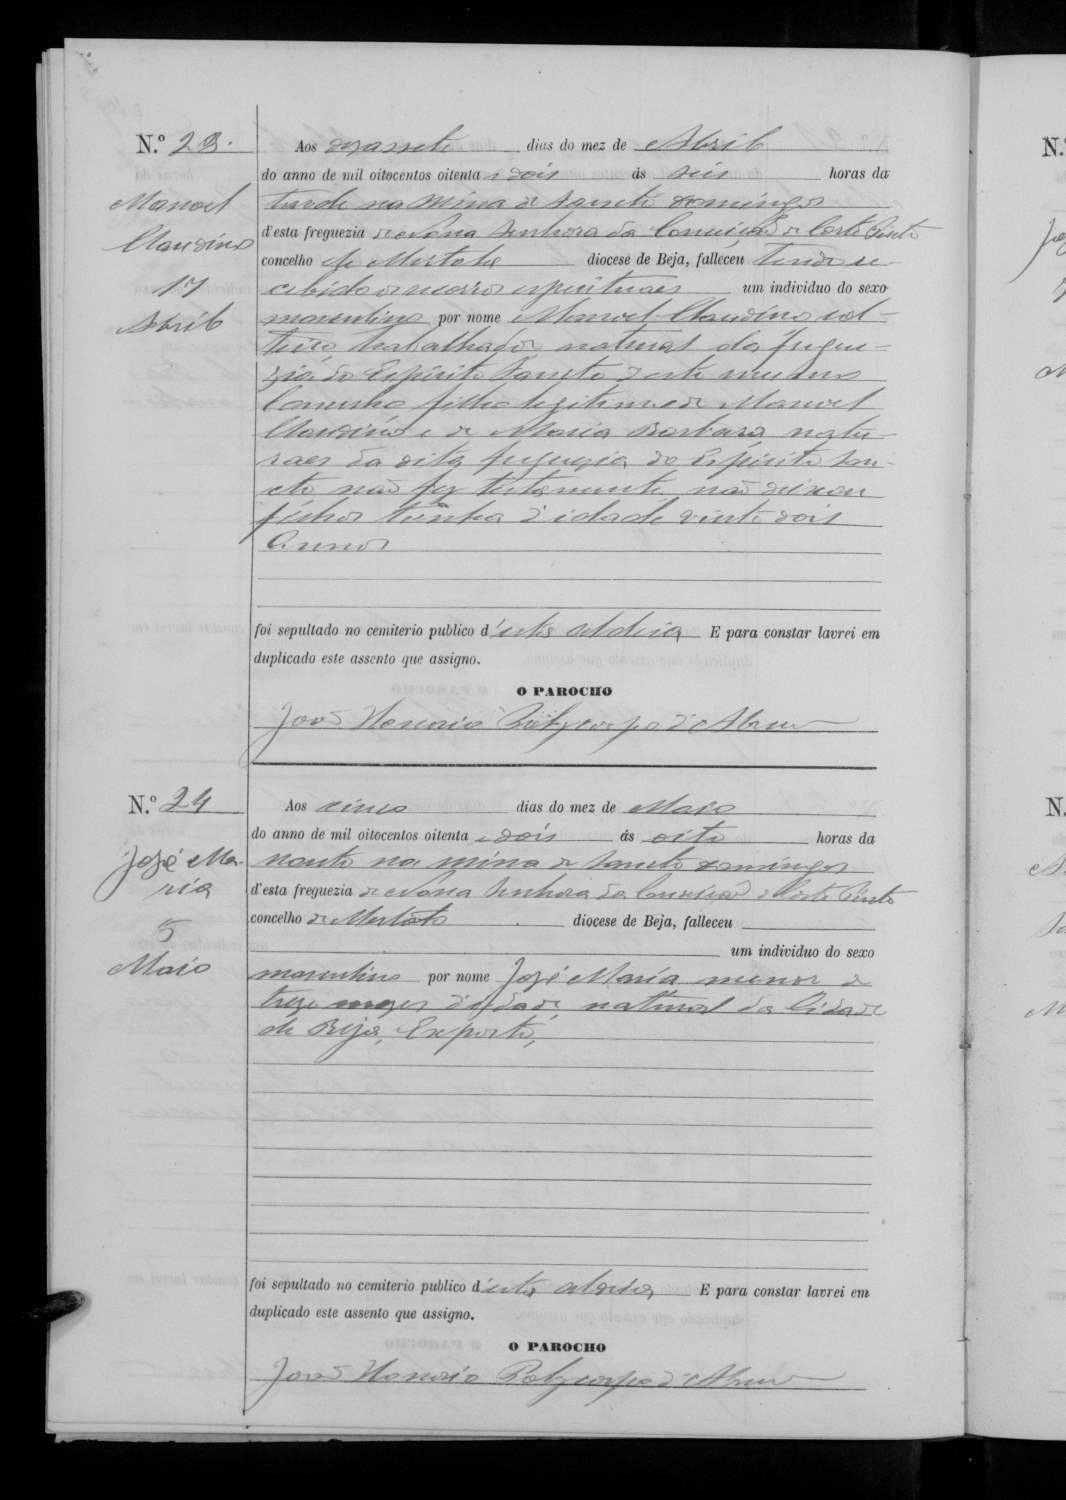 N.º 23.
Manoel
Claudino
17
Abril
Aos dezassete dias do mez de Abril
do anno de mil oitocentos oitenta e dois ás seis horas da
tarde na Mina de Sancto Domingos
d'esta freguezia de Nossa Senhora da Conceição de Corte Pinto
concelho de Mertola diocese de Beja, falleceu tendo re-
cebido os socorros espirituaes um individuo do sexo
masculino por nome Manoel Claudino sol-
teiro trabalhador natural da fregue-
zia do Espirito Sancto d'este mesmo
Concelho filho legitimo de Manoel
Claudino e de Maria Barbara natu-
raes da dita freguezia do Espirito San-
cto não fez testamento não deixou
filhos tinha d'idade vinte dois
annos
foi sepultado no cemiterio publico d'esta aldeia E para constar lavrei em
duplicado este assento que assigno.
O PAROCHO
João Honorio Polycarpo d'Abreu
N.º 24
José Ma-
ria
5
Maio
Aos cinco dias do mez de Maio
do anno de mil oitocentos oitenta e dois ás oito horas da
noute na mina de Sancto Domingos
d'esta freguezia de Nossa Senhora da Conceição de Corte Pinto
concelho de Mertola diocese de Beja, falleceu
um individuo do sexo
masculino por nome José Maria menor de
treze mezes d'idade, natural da Cidade
de Beja, Exposto,
foi sepultado no cemiterio publico d'esta aldeia E para constar lavrei em
duplicado este assento que assigno.
O PAROCHO
João Honorio Polycarpo d'Abreu
N.º
N.